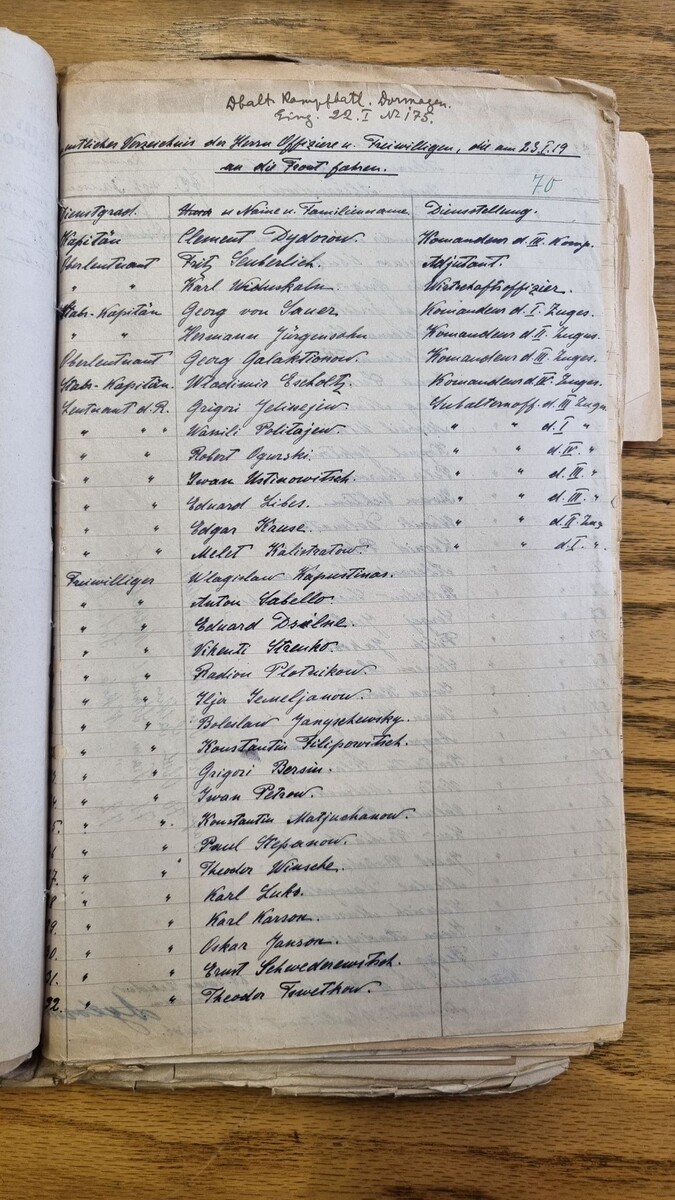 Dbalt Kampfbatl. Dormagen.
Eing. 22. I № 175.
mtliches Verzeichnis der Herrn Offiziere u. Freiwilligen, die am 23.I.19
an die Front fahren.
70
Dienstgrad. u Name u. Familienname Dienststellung.
Kapitän Clement Dydorow. Komandeur d. III. Komp.
Oberleutnant Fritz Seuberlich. Adjutant.
" " Karl Widuskaln. Wirtschaftsoffizier.
Stabs-Kapitän Georg von Sauer Komandeur d. I. Zuges.
" " Hermann Jürgensohn Komandeur d. II. Zuges.
Oberleutnant Georg Galaktionow. Komandeur d. III. Zuges.
Stabs-Kapitän. Wladimir Escholtz. Komandeur d. IV. Zuges.
Leutnant d. R. Grigori Jelisejew. Subalternoff. d. III Zuges
" " Wassili Politajew. " " d. I "
" " Robert Ogurski. " " d. IV. "
" " Iwan Ustinowitsch. " " d. III. "
" " Eduard Libes. " " d. III. "
" " Edgar Kruse. " " d. II. Zug
" " Melet Kalistratow. " " d. I. "
Freiwilliger Wlagislaw Kapustinas.
" " Anton Sabello.
" " Eduard Dsilne.
" " Vikenti Strenko.
" " Radion Plotnikow.
" " Ilja Jemeljanow.
" " Boleslaw Janyschewsky.
" " Konstantin Filipowitsch.
" " Grigori Bersin.
" " Iwan Petrow.
" " Konstantin Matjuchanow.
" " Paul Stepanow.
" " Theodor Winsche.
" " Karl Luks.
" " Karl Karson.
" " Oskar Janson.
31. " " Ernst Schwederewitsch.
32. " " Theodor Tswetkow.